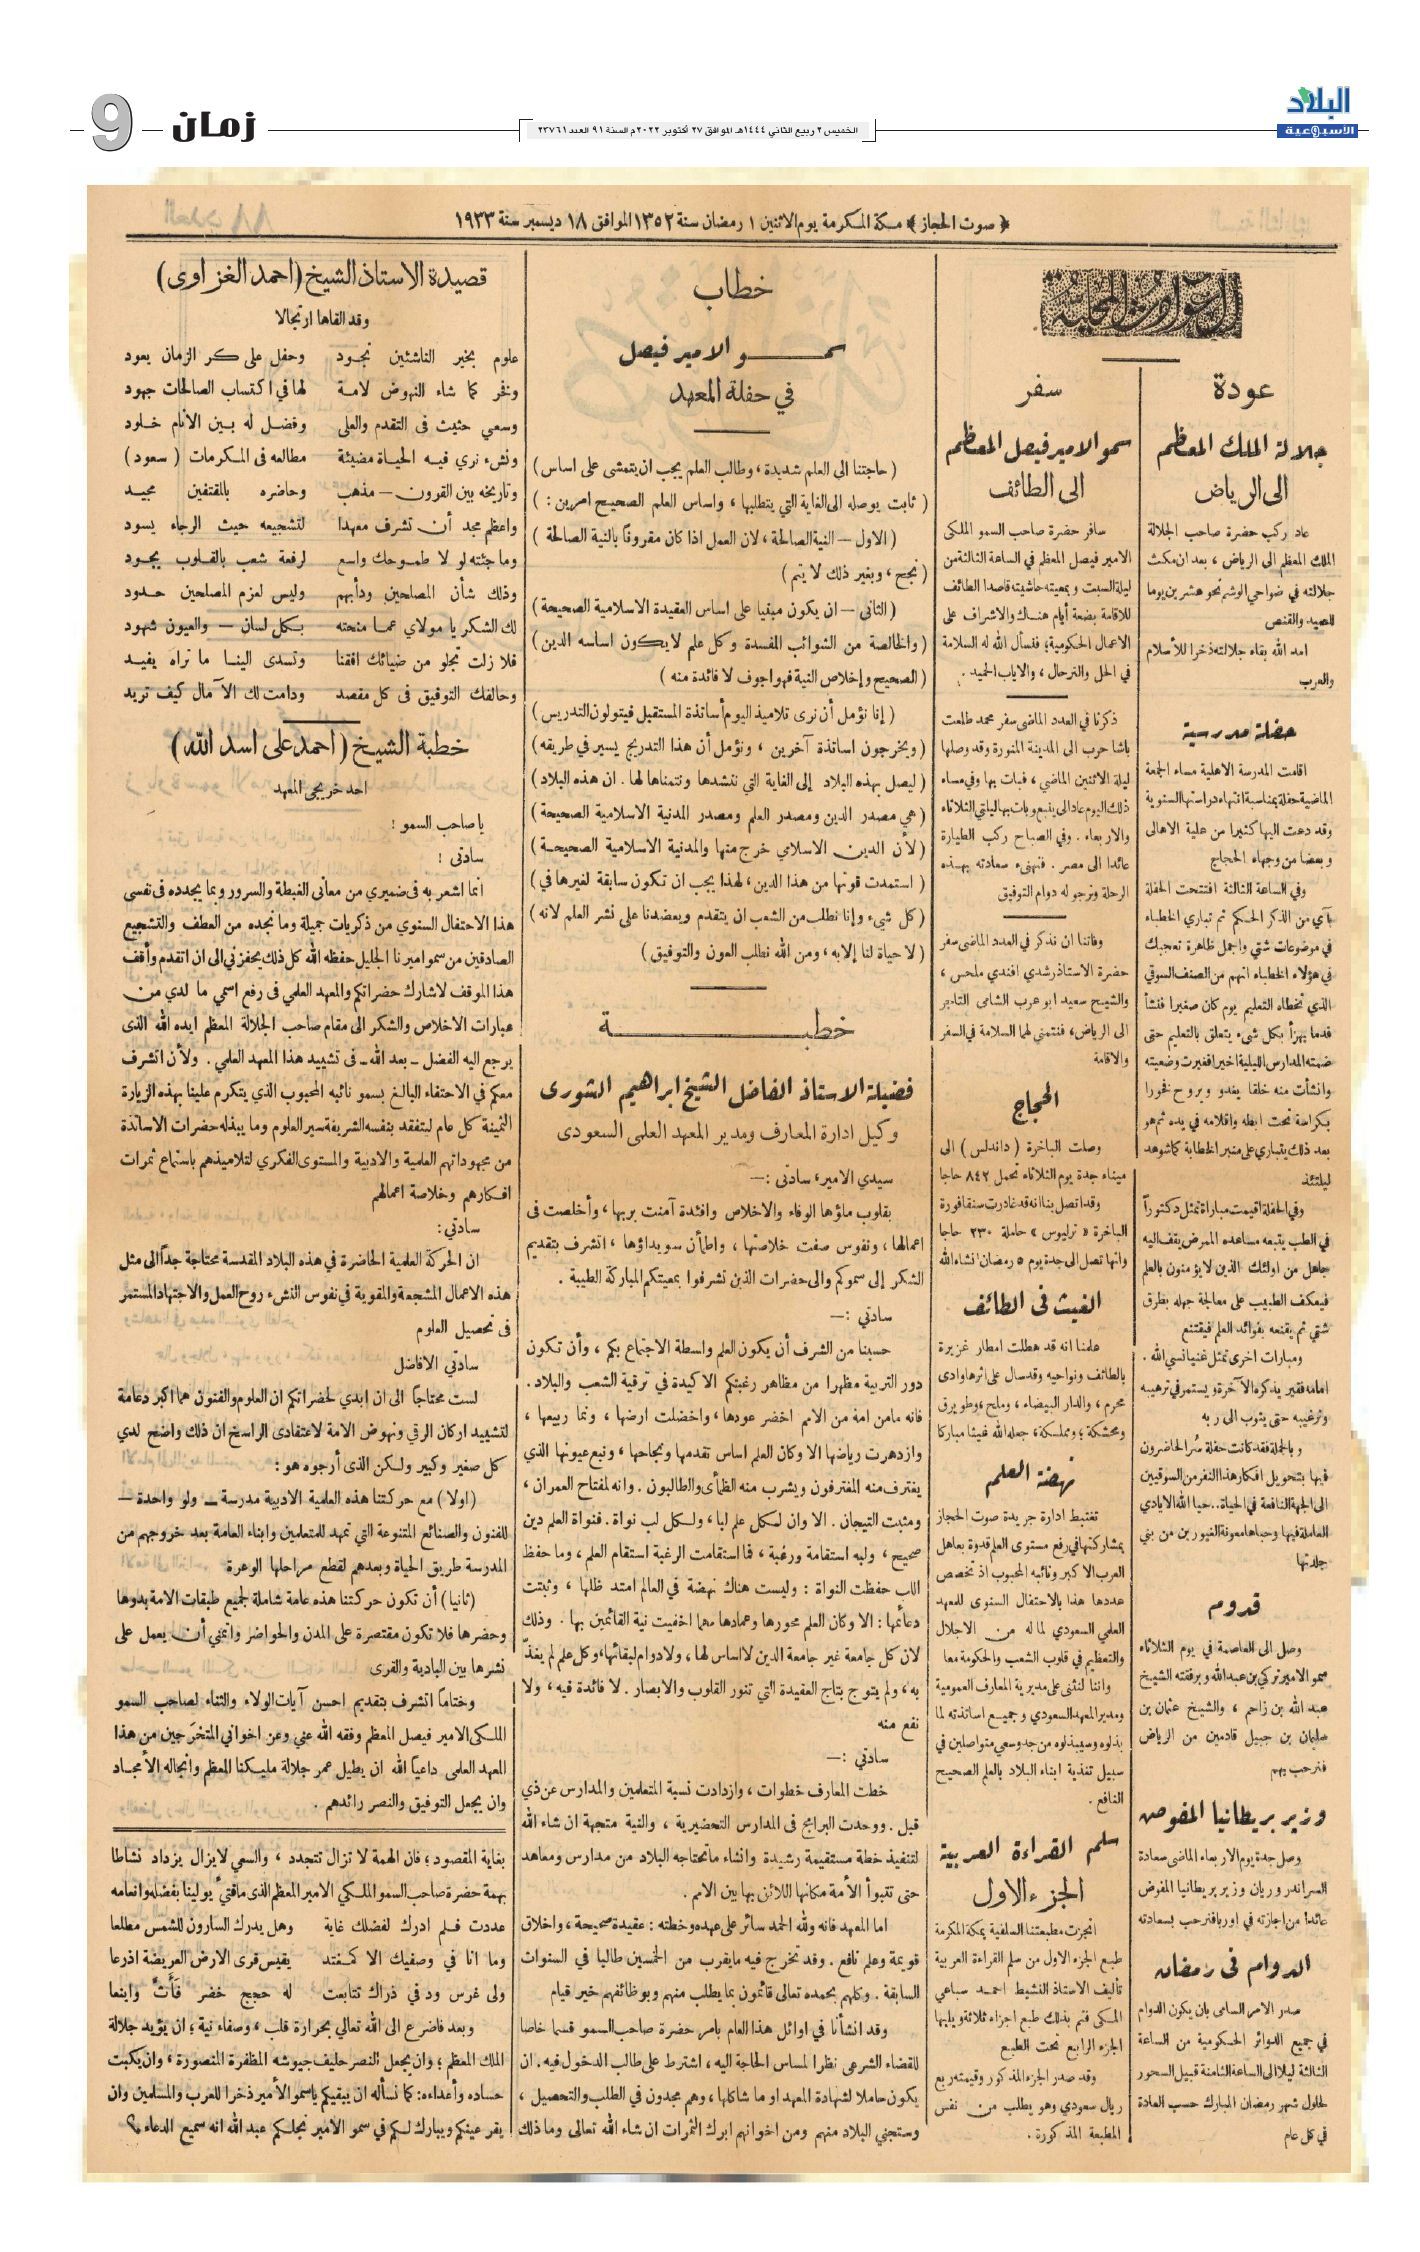 البلاد
الأسبوعية
الخميس ٢ ربيع الثاني ١٤٤٤هـ الموافق ٢٧ أكتوبر ٢٠٢٢م السنة ٩١ العدد ٢٣٧٦١
زمان
9
﴿ صوت الحجاز ﴾ مكة المكرمة يوم الاثنين ١ رمضان سنة ١٣٥٢ الموافق ١٨ ديسمبر سنة ١٩٣٣
الحوادث المحلية
عودة
جلالة الملك المعظم
الى الرياض
عاد ركب حضرة صاحب الجلالة
الملك المعظم الى الرياض ، بعد ان مكث
جلالته في ضواحي الوشم نحو عشرين يوما
للصيد والقنص
امد الله بقاء جلالته ذخرا للأسلام
والعرب
حفلة مدرسية
اقامت المدرسة الاهلية مساء الجمعة
الماضية حفلة بمناسبة انتهاء دراستها السنوية
وقد دعت اليها كثيرا من علية الاهالى
وبعضا من وجهاء الحجاج
وفي الساعة الثالثة افتتحت الحفلة
بآي من الذكر الحكيم ثم تبارى الخطباء
في موضوعات شتى واجمل ظاهرة تعجبك
في هؤلاء الخطباء انهم من الصنف السوقي
الذي تخطاه التعليم يوم كان صغيرا فنشأ
قدما يهزأ بكل شيء يتعلق بالتعليم حتى
ضمته المدارس الليلية اخيرا فغيرت وضعيته
وانشأت منه خلقا يغدو ويروح فخورا
بكراسة تحت ابطه واقلامه في يده ثم هو
بعد ذلك يتبارى على منبر الخطابة كما شوهد
ليلتئذ
وفي الحفلة اقيمت مباراة تمثل دكتوراً
في الطب يتبعه مساعده الممرض يقف اليه
جاهل من اولئك الذين لا يؤمنون بالعلم
فيعكف الطبيب على معالجة جهله بطرق
شتى ثم يقنعه بفوائد العلم فيقتنع
ومباريات اخرى تمثل غنيا نسي الله .
امامه فقير يذكره الآخرة ويستمر في ترهيبه
وترغيبه حتى يثوب الى ربه
وبالجملة فقد كانت حفلة سُر الحاضرون
فيها بتحويل افكار هذا النفر من السوقيين
الى الجهة النافعة في الحياة .. حيا الله الايادي
العاملة فيها وحباها معونة الغيورين من بني
جلدتها
قدوم
وصل الى العاصمة في يوم الثلاثاء
سمو الامير تركي بن عبدالله وبرفقته الشيخ
عبد الله بن زاحم ، والشيخ عثمان بن
سليمان بن جبيل قادمين من الرياض
فنرحب بهم
وزير بريطانيا المفوض
وصل جدة يوم الاربعاء الماضى سعادة
السراندروريان وزير بريطانيا المفوض
عائداً من اجازته في اوربا فنرحب بسعادته
الدوام فى رمضان
صدر الامر السامى بان يكون الدوام
في جميع الدوائر الحكومية من الساعة
الثالثة ليلا الى الساعة الثامنة قبيل السحور
لحلول شهر رمضان المبارك حسب العادة
في كل عام
سفر
سمو الامير فيصل المعظم
الى الطائف
سافر حضرة صاحب السمو الملكى
الامير فيصل المعظم في الساعة الثالثة من
ليلة السبت وبمعيته حاشيته قاصدا الطائف
للاقامة بضعة أيام هناك والاشراف على
الاعمال الحكومية؛ فنسأل الله له السلامة
في الحل والترحال ، والاياب الحميد .
ذكرنا في العدد الماضى سفر محمد طلعت
باشا حرب الى المدينة المنورة وقد وصلها
ليلة الاثنين الماضي ، فبات بها وفي مساء
ذلك اليوم عاد الى ينبع وبات بها ليلتي الثلاثاء
والاربعاء . وفي الصباح ركب الطيارة
عائدا الى مصر . فنهنىء سعادته بهذه
الرحلة ونرجو له دوام التوفيق
وفاتنا ان نذكر في العدد الماضى سفر
حضرة الاستاذ رشدي افندي ملحس ،
والشيخ سعيد ابو عرب الشامى التاجر
الى الرياض، فنتمنى لهما السلامة في السفر
والاقامة
الحجاج
وصلت الباخرة ( داندلس ) الى
ميناء جدة يوم الثلاثاء تحمل ٨٤٢ حاجا
وقد اتصل بنا انه قد غادرت سنقافورة
الباخرة « ترليوس » حاملة ٢٣٠ حاجا
وانها تصل الى جدة يوم ٥ رمضان انشاء الله
الغيث فى الطائف
علمنا انه قد هطلت امطار غزيرة
بالطائف ونواحيه وقد سال على اثرها وادى
محرم ، والدار البيضاء ، وملح ، وطويرق
ومحشكة ؛ ومثلمكة، جعله الله غيثا مباركا
نهضة العلم
تغتبط ادارة جريدة صوت الحجاز
بمشاركتها في رفع مستوى العلم قدوة بعاهل
العرب الاكبر ونائبه المحبوب اذ تخصص
عددها هذا بالاحتفال السنوى للمعهد
العلمي السعودي لما له من الاجلال
والتعظيم في قلوب الشعب والحكومة معا
واننا لنثنى على مديرية المعارف العمومية
ومدير المعهد السعودي وجميع اساتذته لما
بذلوه وسيبذلوه من جد وسعي متواصلين في
سبيل تغذية ابناء البلاد بالعلم الصحيح
النافع .
سلم القراءة العربية
الجزء الاول
انجزت مطبعتنا السلفية بمكة المكرمة
طبع الجزء الاول من سلم القراءة العربية
تأليف الاستاذ النشيط احمد سباعي
المكى فتم بذلك طبع اجزاء ثلاثة ويليها
الجزء الرابع تحت الطبع
وقد صدر الجزء المذكور وقيمته ربع
ريال سعودي وهو يطلب من نفس
المطبعة المذكورة .
خطاب
سمو الامير فيصل
في حفلة المعهد
( حاجتنا الى العلم شديدة ، وطالب العلم يجب ان يتمشى على اساس )
( ثابت يوصله الى الغاية التي يتطلبها ، واساس العلم الصحيح امرين : )
( الاول — النية الصالحة ، لان العمل اذا كان مقروناً بالنية الصالحة )
( نجح ، وبغير ذلك لا يتم )
( الثانى — ان يكون مبنيا على اساس العقيدة الاسلامية الصحيحة )
( والخالصة من الشوائب المفسدة وكل علم لا يكون اساسه الدين )
( الصحيح وإخلاص النية فهو اجوف لا فائدة منه )
( إنا نؤمل أن نرى تلاميذ اليوم أساتذة المستقبل فيتولون التدريس )
( ويخرجون اساتذة آخرين ، ونؤمل أن هذا التدريج يسير في طريقه )
( ليصل بهذه البلاد إلى الغاية التي ننشدها ونتمناها لها . ان هذه البلاد )
( هي مصدر الدين ومصدر العلم ومصدر المدنية الاسلامية الصحيحة )
( لأن الدين الاسلامي خرج منها والمدنية الاسلامية الصحيحة )
( استمدت قوتها من هذا الدين ، لهذا يجب ان تكون سابقة لغيرها في )
( كل شيء وإنا نطلب من الشعب ان يتقدم ويعضدنا على نشر العلم لانه )
( لا حياة لنا إلا به ، ومن الله نطلب العون والتوفيق )
خطبة
فضيلة الاستاذ الفاضل الشيخ ابراهيم الشورى
وكيل ادارة المعارف ومدير المعهد العلمى السعودى
سيدي الامير، سادتى :—
بقلوب ماؤها الوفاء والاخلاص وافئدة آمنت بربها ، وأخلصت فى
اعمالها ، ونفوس صفت خلاصتها ، واطمأن سويداؤها ، اتشرف بتقديم
الشكر إلى سموكم والى حضرات الذين تشرفوا بمعيتكم المباركة الطيبة .
سادتي :—
حسبنا من الشرف أن يكون العلم واسطة الاجتماع بكم ، وأن تكون
دور التربية مظهرا من مظاهر رغبتكم الاكيدة في ترقية الشعب والبلاد.
فانه مامن امة من الامم اخضر عودها، واخضلت ارضها ، ونما ربيعها ،
وازدهرت رياضها الا وكان العلم اساس تقدمها ونجاحها ، ونبع عيونها الذي
يغترف منه المغترفون ويشرب منه الظمأى والطالبون . وانه لمفتاح العمران ،
ومثبت التيجان . الا وان لكل علم لبا ، ولكل لب نواة . فنواة العلم دين
صحيح ، ولبه استقامة ورغبة ، فما استقامت الرغبة استقام العلم ، وما حفظ
اللب حفظت النواة : وليست هناك نهضة في العالم امتد ظلها ، وثبتت
دعائمها : الا وكان العلم محورها وعمادها مهما اخفيت نية القائمين بها . وذلك
لان كل جامعة غير جامعة الدين لا اساس لها ، ولا دوام لبقائها ، وكل علم لم يغذّ
به ، ولم يتوج بتاج العقيدة التي تنور القلوب والابصار . لا فائدة فيه ، ولا
نفع منه
سادتي :—
خطت المعارف خطوات ، وازدادت نسبة المتعلمين والمدارس عن ذي
قبل . ووحدت البرامج فى المدارس التحضيرية ، والنية متجهة ان شاء الله
لتنفيذ خطة مستقيمة رشيدة وانشاء ماتحتاجه البلاد من مدارس ومعاهد
حتى تتبوأ الأمة مكانها اللائق بها بين الامم .
اما المعهد فانه ولله الحمد سائر على عهده وخطته : عقيدة صحيحة ، واخلاق
قويمة وعلم نافع . وقد تخرج فيه مايقرب من الخمسين طالبا في السنوات
السابقة . وكلهم بحمده تعالى قائمون بما يطلب منهم وبوظائفهم خير قيام
وقد انشأنا في اوائل هذا العام بامر حضرة صاحب السمو قسما خاصا
للقضاء الشرعى نظرا لمساس الحاجة اليه ، اشترط على طالب الدخول فيه . ان
يكون حاملا لشهادة المعهد او ما شاكلها ، وهم مجدون في الطلب والتحصيل ،
وستجني البلاد منهم ومن اخوانهم ابرك الثمرات ان شاء الله تعالى وما ذلك
قصيدة الاستاذ الشيخ (احمد الغزاوى)
وقد القاها ارتجالا
علوم بخير الناشئين تجود وحفل على كر الزمان يعود
وفخر كما شاء النهوض لامة لها في اكتساب الصالحات جهود
وسعي حثيث فى التقدم والعلى وفضل له بين الانام خلود
ونشء نرى فيه الحياة مضيئة مطالعه فى المكرمات ( سعود )
وتاريخه بين القرون — مذهب وحاضره بالمقتفين مجيد
واعظم مجد أن تشرف معهدا لتشجيعه حيث الرجاء يسود
وما جئته لو لا طموحك واسع لرفعة شعب بالقلوب يجود
وذلك شأن المصلحين ودأبهم وليس لعزم المصلحين حدود
لك الشكر يا مولاي عما منحته بكل لسان — والعيون شهود
فلا زلت تجلو من ضيائك افقنا وتسدى الينا ما تراه يفيد
وحالفك التوفيق فى كل مقصد ودامت لك الآمال كيف تريد
خطبة الشيخ (احمد على اسد الله)
احد خريجي المعهد
يا صاحب السمو !
سادتى !
انما اشعر به فى ضميري من معانى الغبطة والسرور وبما يجدده فى نفسى
هذا الاحتفال السنوي من ذكريات جميلة وما نجده من العطف والتشجيع
الصادقين من سمو اميرنا الجليل حفظه الله كل ذلك يحفزني الى ان اتقدم وأقف
هذا الموقف لاشارك حضراتكم والمعهد العلمي فى رفع اسمي ما لدي من
عبارات الاخلاص والشكر الى مقام صاحب الجلالة المعظم ايده الله الذى
يرجع اليه الفضل - بعد الله - فى تشييد هذا المعهد العلمي . ولأن اتشرف
معكم في الاحتفاء البالغ بسمو نائبه المحبوب الذي يتكرم علينا بهذه الزيارة
الثمينة كل عام ليتفقد بنفسه الشريفة سير العلوم وما يبذله حضرات الاساتذة
من مجهوداتهم العلمية والادبية والمستوى الفكري لتلاميذهم باستماع ثمرات
افكارهم وخلاصة اعمالهم
سادتي :
ان الحركة العلمية الحاضرة في هذه البلاد المقدسة محتاجة جداً الى مثل
هذه الاعمال المشجعة والمقوية في نفوس النشء روح العمل والاجتهاد المستمر
فى تحصيل العلوم
سادتي الافاضل
لست محتاجاً الى ان ابدي لحضراتكم ان العلوم والفنون هما اكبر دعامة
لتشييد اركان الرقي ونهوض الامة لاعتقادى الراسخ ان ذلك واضح لدي
كل صغير وكبير ولكن الذى أرجوه هو :
(اولا) مع حركتنا هذه العلمية الادبية مدرسة — ولو واحدة —
للفنون والصنائع المتنوعة التي تمهد للمتعلمين وابناء العامة بعد خروجهم من
المدرسة طريق الحياة وبعدهم لقطع مراحلها الوعرة
(ثانيا) أن تكون حركتنا هذه عامة شاملة لجميع طبقات الامة بدوها
وحضرها فلا تكون مقتصرة على المدن والحواضر واتمنى أن يعمل على
نشرها بين البادية والقرى
وختاماً اتشرف بتقديم احسن آيات الولاء والثناء لصاحب السمو
الملكى الامير فيصل المعظم وفقه الله عني وعن اخواني المتخرجين من هذا
المعهد العلمى داعياً الله ان يطيل عمر جلالة مليكنا المعظم وانجاله الأمجاد
وان يجعل التوفيق والنصر رائدهم .
بغاية المقصود ؛ فان الهمة لا تزال تتجدد ، والسعي لايزال يزداد نشاطا
بهمة حضرة صاحب السمو الملكي الامير المعظم الذى مافتيء يولينا بفضله وانعامه
عددت فلم ادرك لفضلك غاية وهل يدرك السارون للشمس مطلعا
وما انا في وصفيك الا كمغتد يقيس قرى الارض العريضة اذرعا
ولى غرس ود في ذراك تتابعت له حجج خضر فأث وابنعا
وبعد فاضرع الى الله تعالي بحرارة قلب ، وصفاء نية ؛ ان يؤيد جلالة
الملك المعظم ؛ وان يجعل النصر حليف جيوشه المظفرة المنصورة ، وان يكبت
حساده وأعداءه: كما نسأله ان يبقيكم ياسمو الأمير ذخرا للعرب والمسلمين وان
يقر عينكم ويبارك لكم في سمو الأمير نجلكم عبد الله انه سميع الدعاء ؟